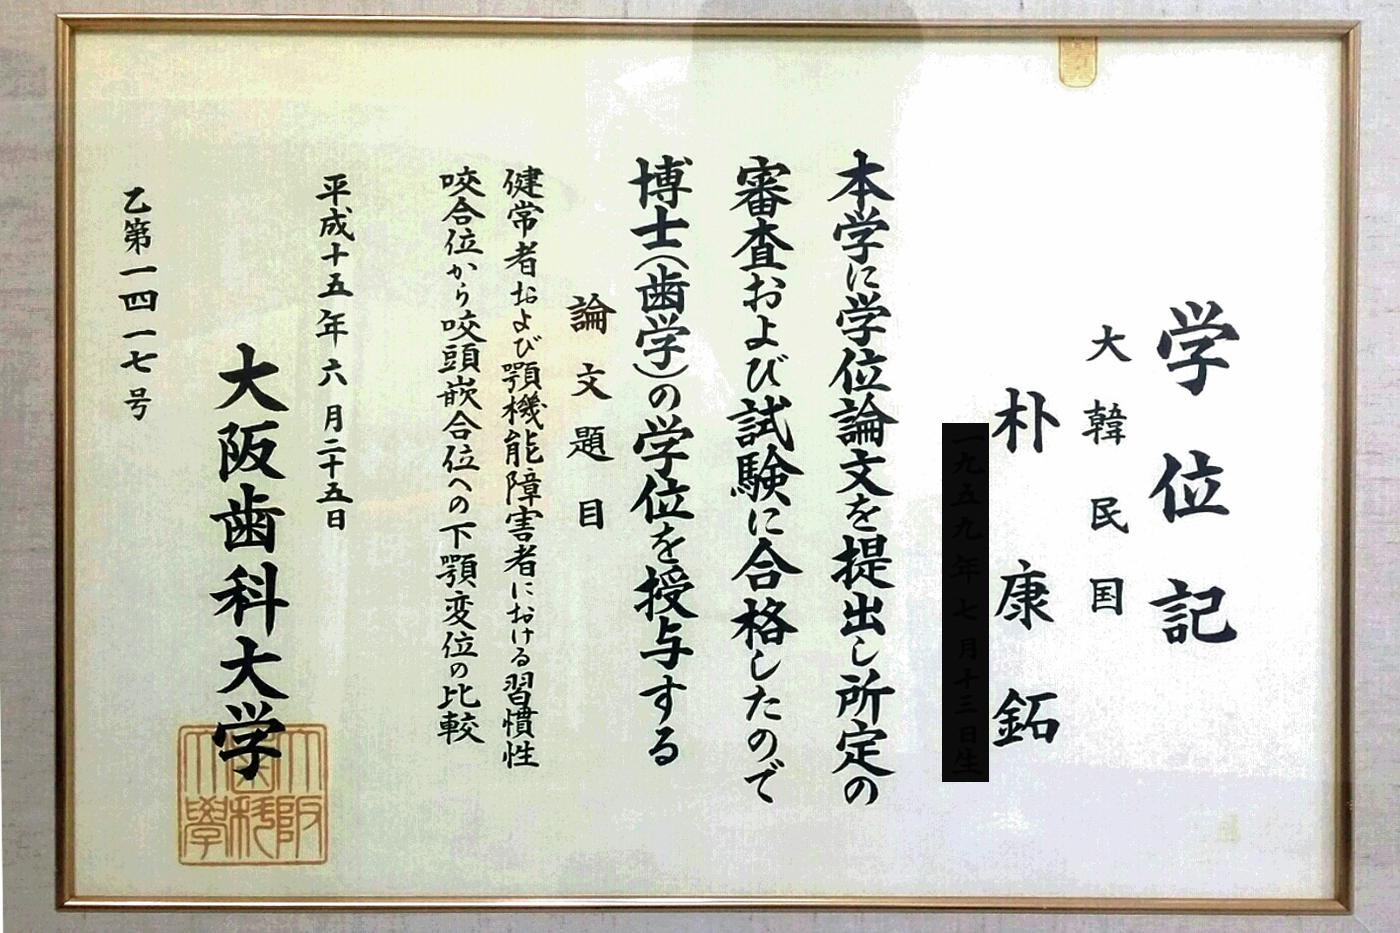 学位記
大韓民国
朴康鉐
本学に学位論文を提出し所定の
審査および試験に合格したので
博士(歯学)の学位を授与する
論文題目
健常者および顎機能障害者における習慣性
咬合位から咬頭嵌合位への下顎変位の比較
平成十五年六月二十五日
大阪歯科大学
乙第一四一七号